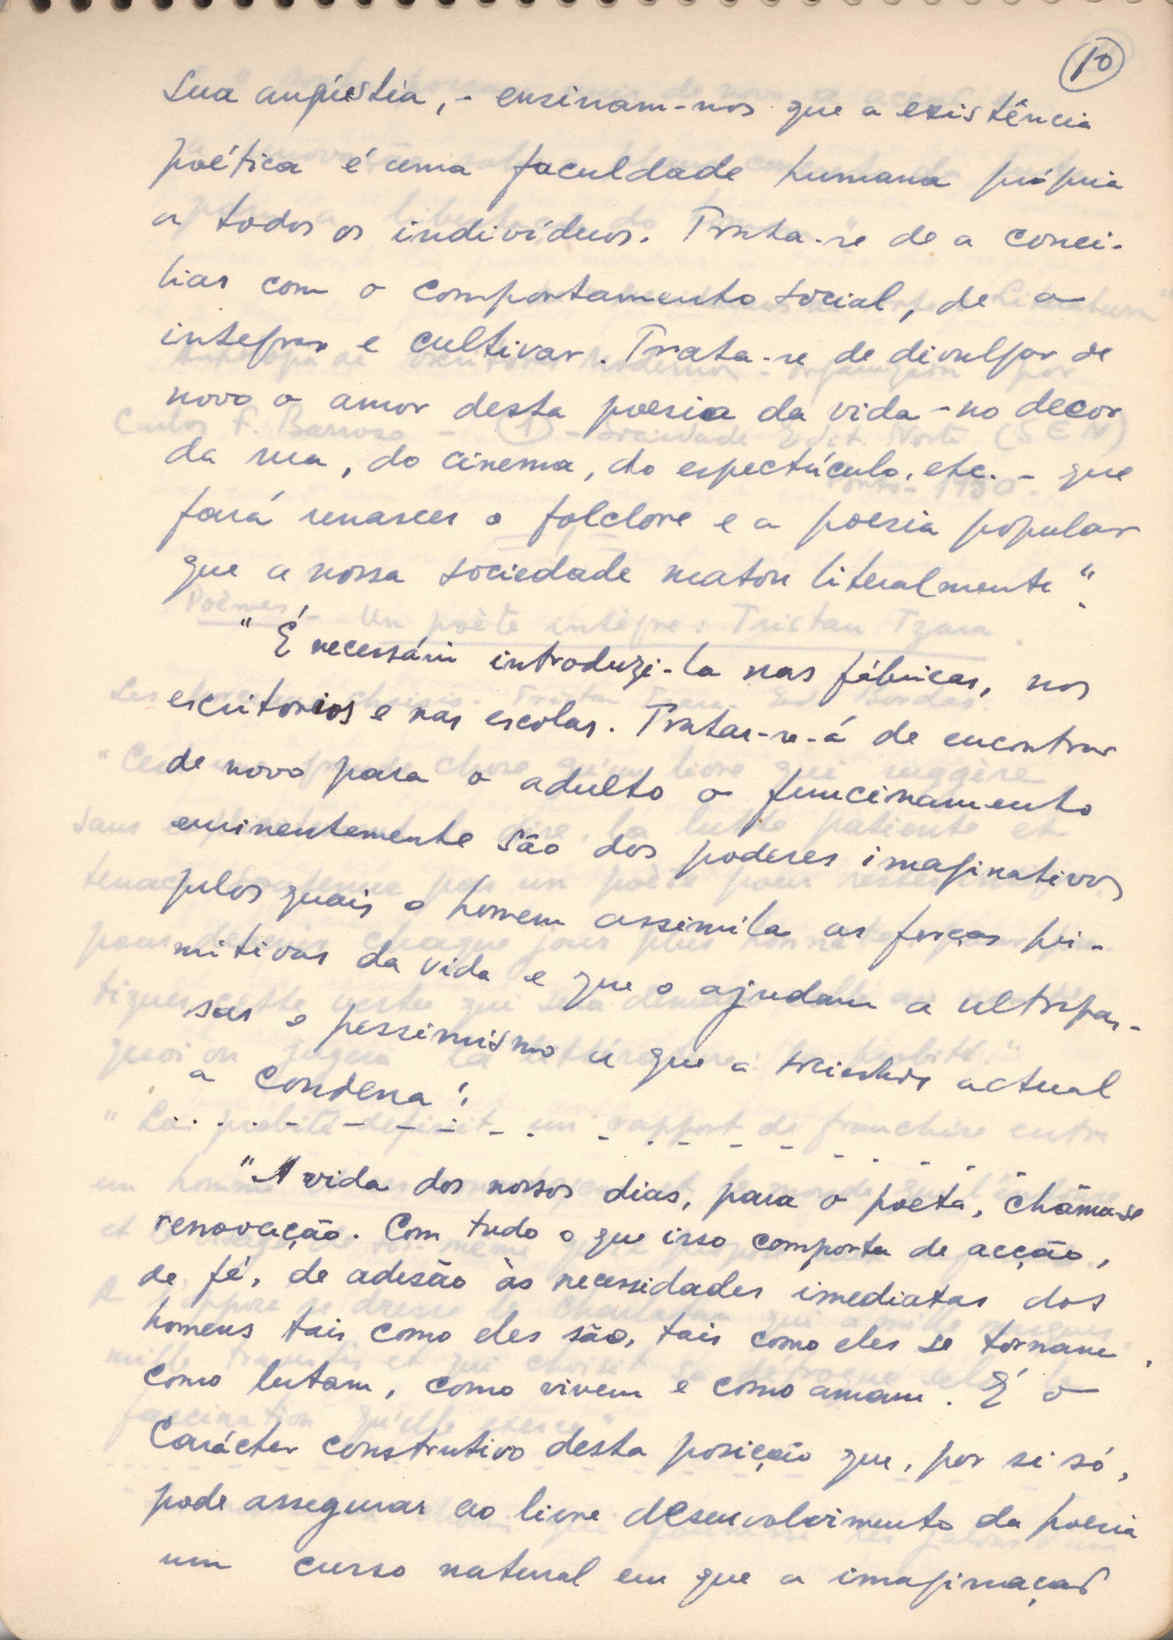 10
sua angústia, - ensinam-nos que a existência
poética é uma faculdade humana própria
a todos os indivíduos. Trata-se de a conci-
liar com o comportamento social, de a
integrar e cultivar. Trata-se de divulgar de
novo o amor desta poesia da vida - no decor
da rua, do cinema, do espectáculo, etc. - que
fará renascer o folclore e a poesia popular
que a nossa sociedade matou literalmente".
"É necessário introduzi-la nas fábricas, nos
escritorios e nas escolas. Tratar-se-á de encontrar
de novo para o adulto o funcionamento
eminentemente são dos poderes imaginativos
pelos quais o homem assimila as forças pri-
mitivas da vida e que o ajudam a ultrapas-
sar o pessimismo a que a sociedade actual
a condena".
"A vida dos nossos dias, para o poeta, chama-se
renovação. Com tudo o que isso comporta de acção,
de fé, de adesão às necessidades imediatas dos
homens tais como eles são, tais como eles se tornam,
como lutam, como vivem e como amam. É o
Carácter construtivo desta posição que, por si só,
pode assegurar ao livre desenvolvimento da poesia
um curso natural em que a imaginação